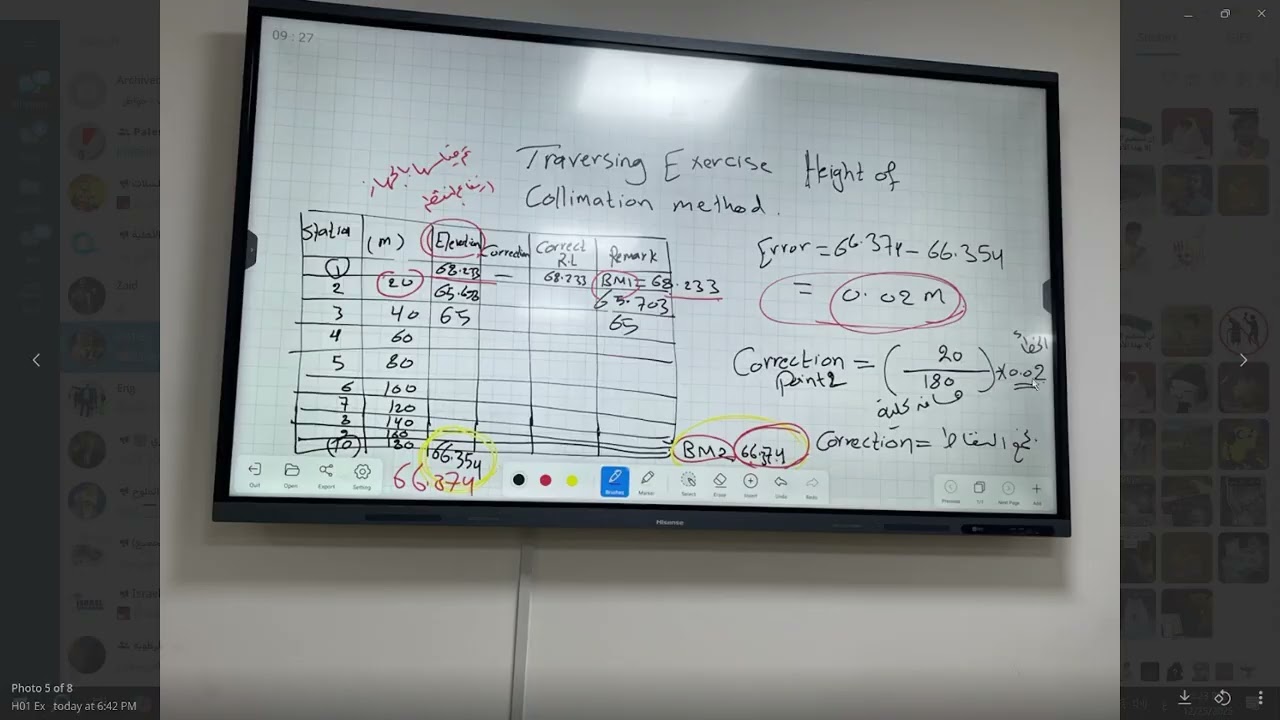 09:27
Traversing Exercise Height of
Collimation method.
Station (m) Elevation Correction Correct R.L Remark
1 68.233 — 68.233 BM1=68.233
2 20 65.703
3 40 65 65
4 60
5 80
6 100
7 120
8 140
9 160
10 66.354 BM2 66.374
66.374
Error = 66.374 - 66.354
= 0.02 m
Correction Point 2 = (20/180) × 0.02
Correction =
Quit Open Export Setting Brushes Marker Select Eraser Insert Undo Redo Previous 1/1 Next Page Add
Hisense
Archived
Zaid
Eng
Israel
Stickers GIFs
Photo 5 of 8
H01 Ex today at 6:42 PM